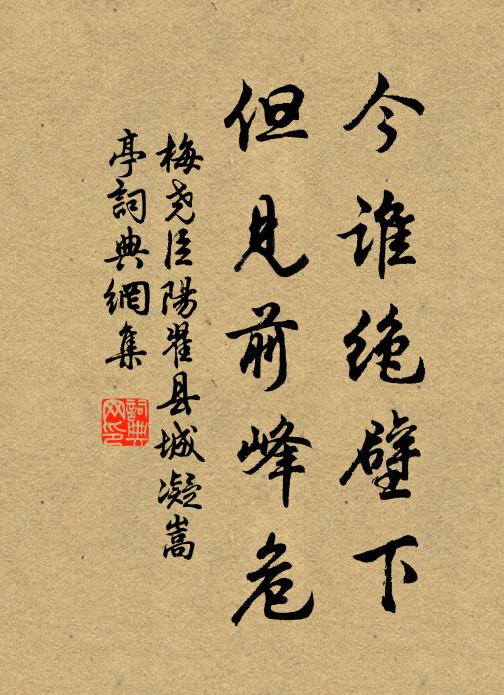 今谁绝壁下
但见前峰危
梅尧臣陽翟县城凝嵩
亭詞典網集
詞典
网印